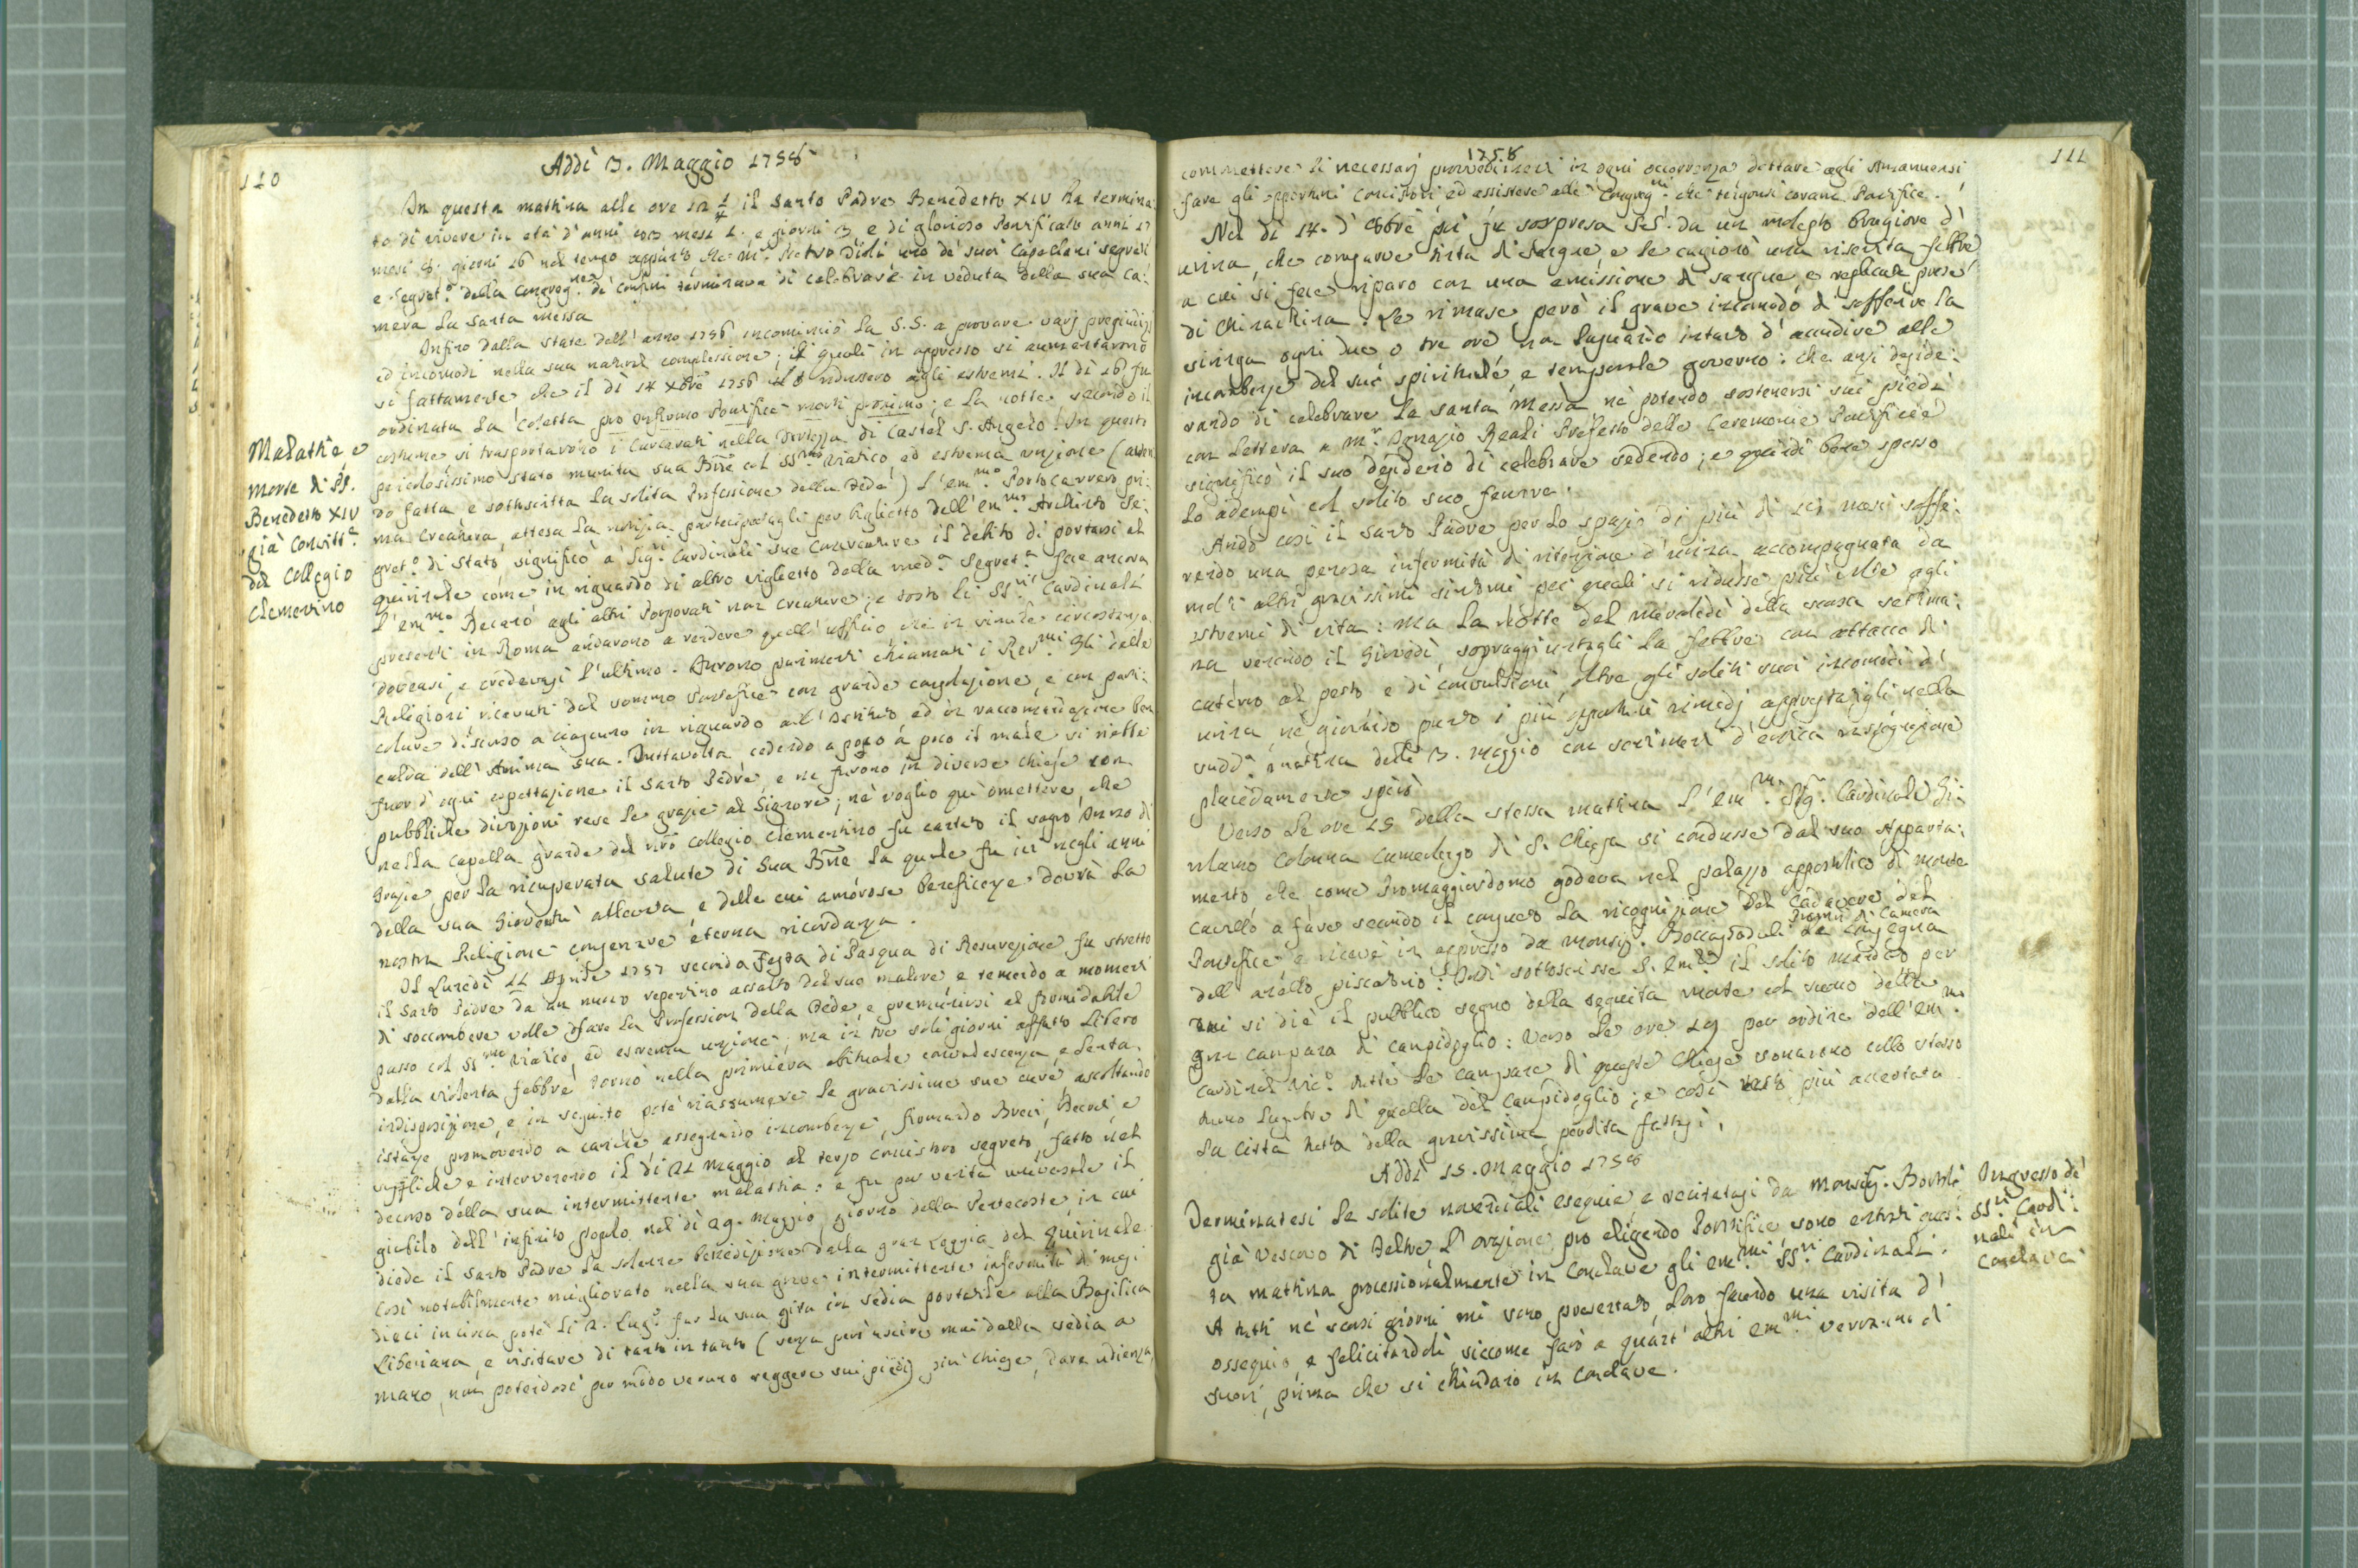 110
Addi 3. Maggio 1758
In questa mattina alle ore 12 1/4 il Santo Padre Benedetto XIV ha termina:
to di vivere in età d'anni mesi 1. e giorni 3 e di glorioso Pontificato anni 17
mesi 8. giorni 16 nel tempo appunto che m.r Pietro uno de' suoi Capellani segreti
e Segret.o della Congreg.ne de' Confini terminava di celebrare in veduta della sua ca:
mera la Santa Messa
Infino dalla state dell'anno 1756 incominciò la S.S. a provare varj pregiudizj
ed incomodi nella sua natural complessione; li quali in appresso si aumentarono
sì fattamente che il dì 14 Xbre 1756 lo ridussero agli estremi. Il dì 16 fu
ordinata la Coletta pro Pontifice morti proximo; e la notte secondo il
costume si trasportarono i Carcerati nella Fortezza di Castel S. Angelo. In questo
pericolosissimo stato munita sua Bne col SS.mo Viatico ed estrema unzione (aven
do fatta e sottoscritta la solita Professione della Fede) l'em.mo Portocarrero pri:
ma Creatura, attesa la notizia partecipatagli per biglietto dell'em.mo Archinto Se:
gret.o di Stato, significò a' Sig.ri Cardinali sue Concreature il debito di portarsi al
Quirinale come in riguardo di altro viglietto della med.a Segret.a fece ancora
l'em.mo agli altri Porporati non creature; e tosto li SS.ri Cardinali
presenti in Roma andarono a rendere quell'ufficio che in simile circostanza
doveasi, e credevasi l'ultimo. Furono parimenti chiamati i Rev.mi Gli delle
Religioni ricevuti dal sommo Pontefice con grande consolazione, e con parti:
colare discorso a ciascuno in riguardo all'Istituto ed in raccomandazione ben
calda dell'Anima sua. Tuttavolta cedendo a poco a poco il male si riebbe
fuor d'ogni espettazione il Santo Padre, e ne furono in diverse Chiese con
pubbliche divozioni rese le grazie al Signore; nè voglio quì omettere, che
nella Capella grande del nro Collegio Clementino fu cantato il sagro Inno di
Grazie per la ricuperata salute di Sua Bne la quale fu ivi negli anni
della sua Gioventù allevata, e delle cui amorose beneficenze dovrà la
nostra Religione conservare eterna ricordanza.
Il Lunedì 11 Aprile 1757 seconda Festa di Pasqua di Resurrezione fu stretto
il Santo Padre da un nuovo repentino assalto del suo malore e temendo a momenti
di soccombere volle fare la Professione della Fede, e premunirsi al formidabile
passo col SS.mo Viatico, ed estrema unzione; ma in tre soli giorni affatto libero
dalla violenta febbre tornò nella primiera abituale convalescenza, e lenta
indisposizione, e in seguito potè riassumere le gravissime sue cure ascoltando
istanze, promovendo a cariche assegnando incombenze, firmando Brevi, Decreti e
suppliche e intervenendo il dì 21 Maggio al terzo concistoro segreto, fatto nel
decorso della sua intermittente malattia: e fu per verità universale il
giubilo dell'infinito popolo nel dì 29. Maggio, giorno della Pentecoste, in cui
diede il Santo Padre la solenne benedizione dalla gran Loggia del Quirinale.
Così notabilmente migliorato nella sua grave intermittente infermità di mesi
dieci incirca, potè li 2. Lug.o far la sua gita in sedia portatile alla Basilica
Liberiana, e visitare di tanto in tanto (senza però uscire mai dalla sedia a
mano, non potendosi per modo veruno reggere sui piedi) più Chiese, dare udienza,
Malattie e
morte di PP.
Benedetto XIV
già Convitt.e
del Collegio
Clementino
111
1758
commettere li necessarj provvedimenti in ogni occorrenza dettare agli Amanuensi
fare gli opportuni Concistori ed assistere alle Congreg.ni che tengonsi coram Pontifice.
Nel dì 14. d'8bre poi fu sorpresa S.S. da un molesto bruciore d'
urina, che comparve tinta di Sangue, e le cagionò una risentita febbre
a cui si fece riparo con una emissione di sangue e replicate prese
di Chinachina. Le rimase però il grave incomodo di soffrire la
siringa ogni due o tre ore non lasciando intanto d'accudire alle
incombenze del suo spirituale, e temporale governo: che anzi deside:
rando di celebrare la santa Messa, nè potendo sostenersi sui piedi
con lettera a M.r Ignazio Reali Prefetto delle Ceremonie Pontificie
significò il suo desiderio di celebrare sedendo; e quindi bene spesso
lo adempì col solito suo fervore.
Andò così il santo Padre per lo spazio di più di sei mesi soffe:
rendo una penosa infermità di ritenzione d'urina accompagnata da
molti altri gravissimi sintomi pei quali si ridusse più volte agli
estremi di vita: ma la notte del mercoledì della scorsa settima:
na venendo il Giovedì, sopraggiuntagli la febbre con attacco di
catarro al petto e di convulsioni, oltre gli soliti suoi incomodi d'
urina, nè giovando punto i più opportuni rimedj apprestatigli nella
sudd.a mattina delli 3. Maggio con sentimenti d'eroica rassegnazione
placidamente spirò
Verso le ore 15 della stessa mattina l'Em.mo Sig.r Cardinale Gi:
rolamo Colonna Camerlengo di S. Chiesa si condusse dal suo Apparta:
mento, che come Promaggiordomo godeva nel palazzo appostolico di Monte
cavallo a fare secondo il consueto la ricognizione del Cadavere del
Pontefice e ricevè in appresso da Monsig.r Boccapaduli Promro di Camera la consegna
dell'anello piscatorio. Indi sottoscrisse S. Em.za il solito mandato per
cui si diè il pubblico segno della seguita morte col suono della
gran campana di campidoglio: Verso le ore 19 per ordine dell'Em.mo
Cardinal Vic.o tutte le campane di queste Chiese sonarono collo stesso
tuono lugubre di quella del Campidoglio; e così restò più accertata
la Città tutta della gravissima perdita fattasi.
Addì 15. Maggio 1758
Terminatesi le solite novendiali esequie, e recitatasi da Monsig.r
già Vescovo di Feltre l'orazione pro eligendo Pontifice sono entrati ques:
ta mattina processionalmente in Conclave gli Em.mi SS.ri Cardinali.
A tutti nè scorsi giorni mi sono presentato loro facendo una visita d'
ossequio e felicitandoli siccome farò a quant'altri Em.mi verranno di
fuori, prima che si chiudano in Conclave.
Ingresso de'
SS.ri Cardi:
nali in
Conclave